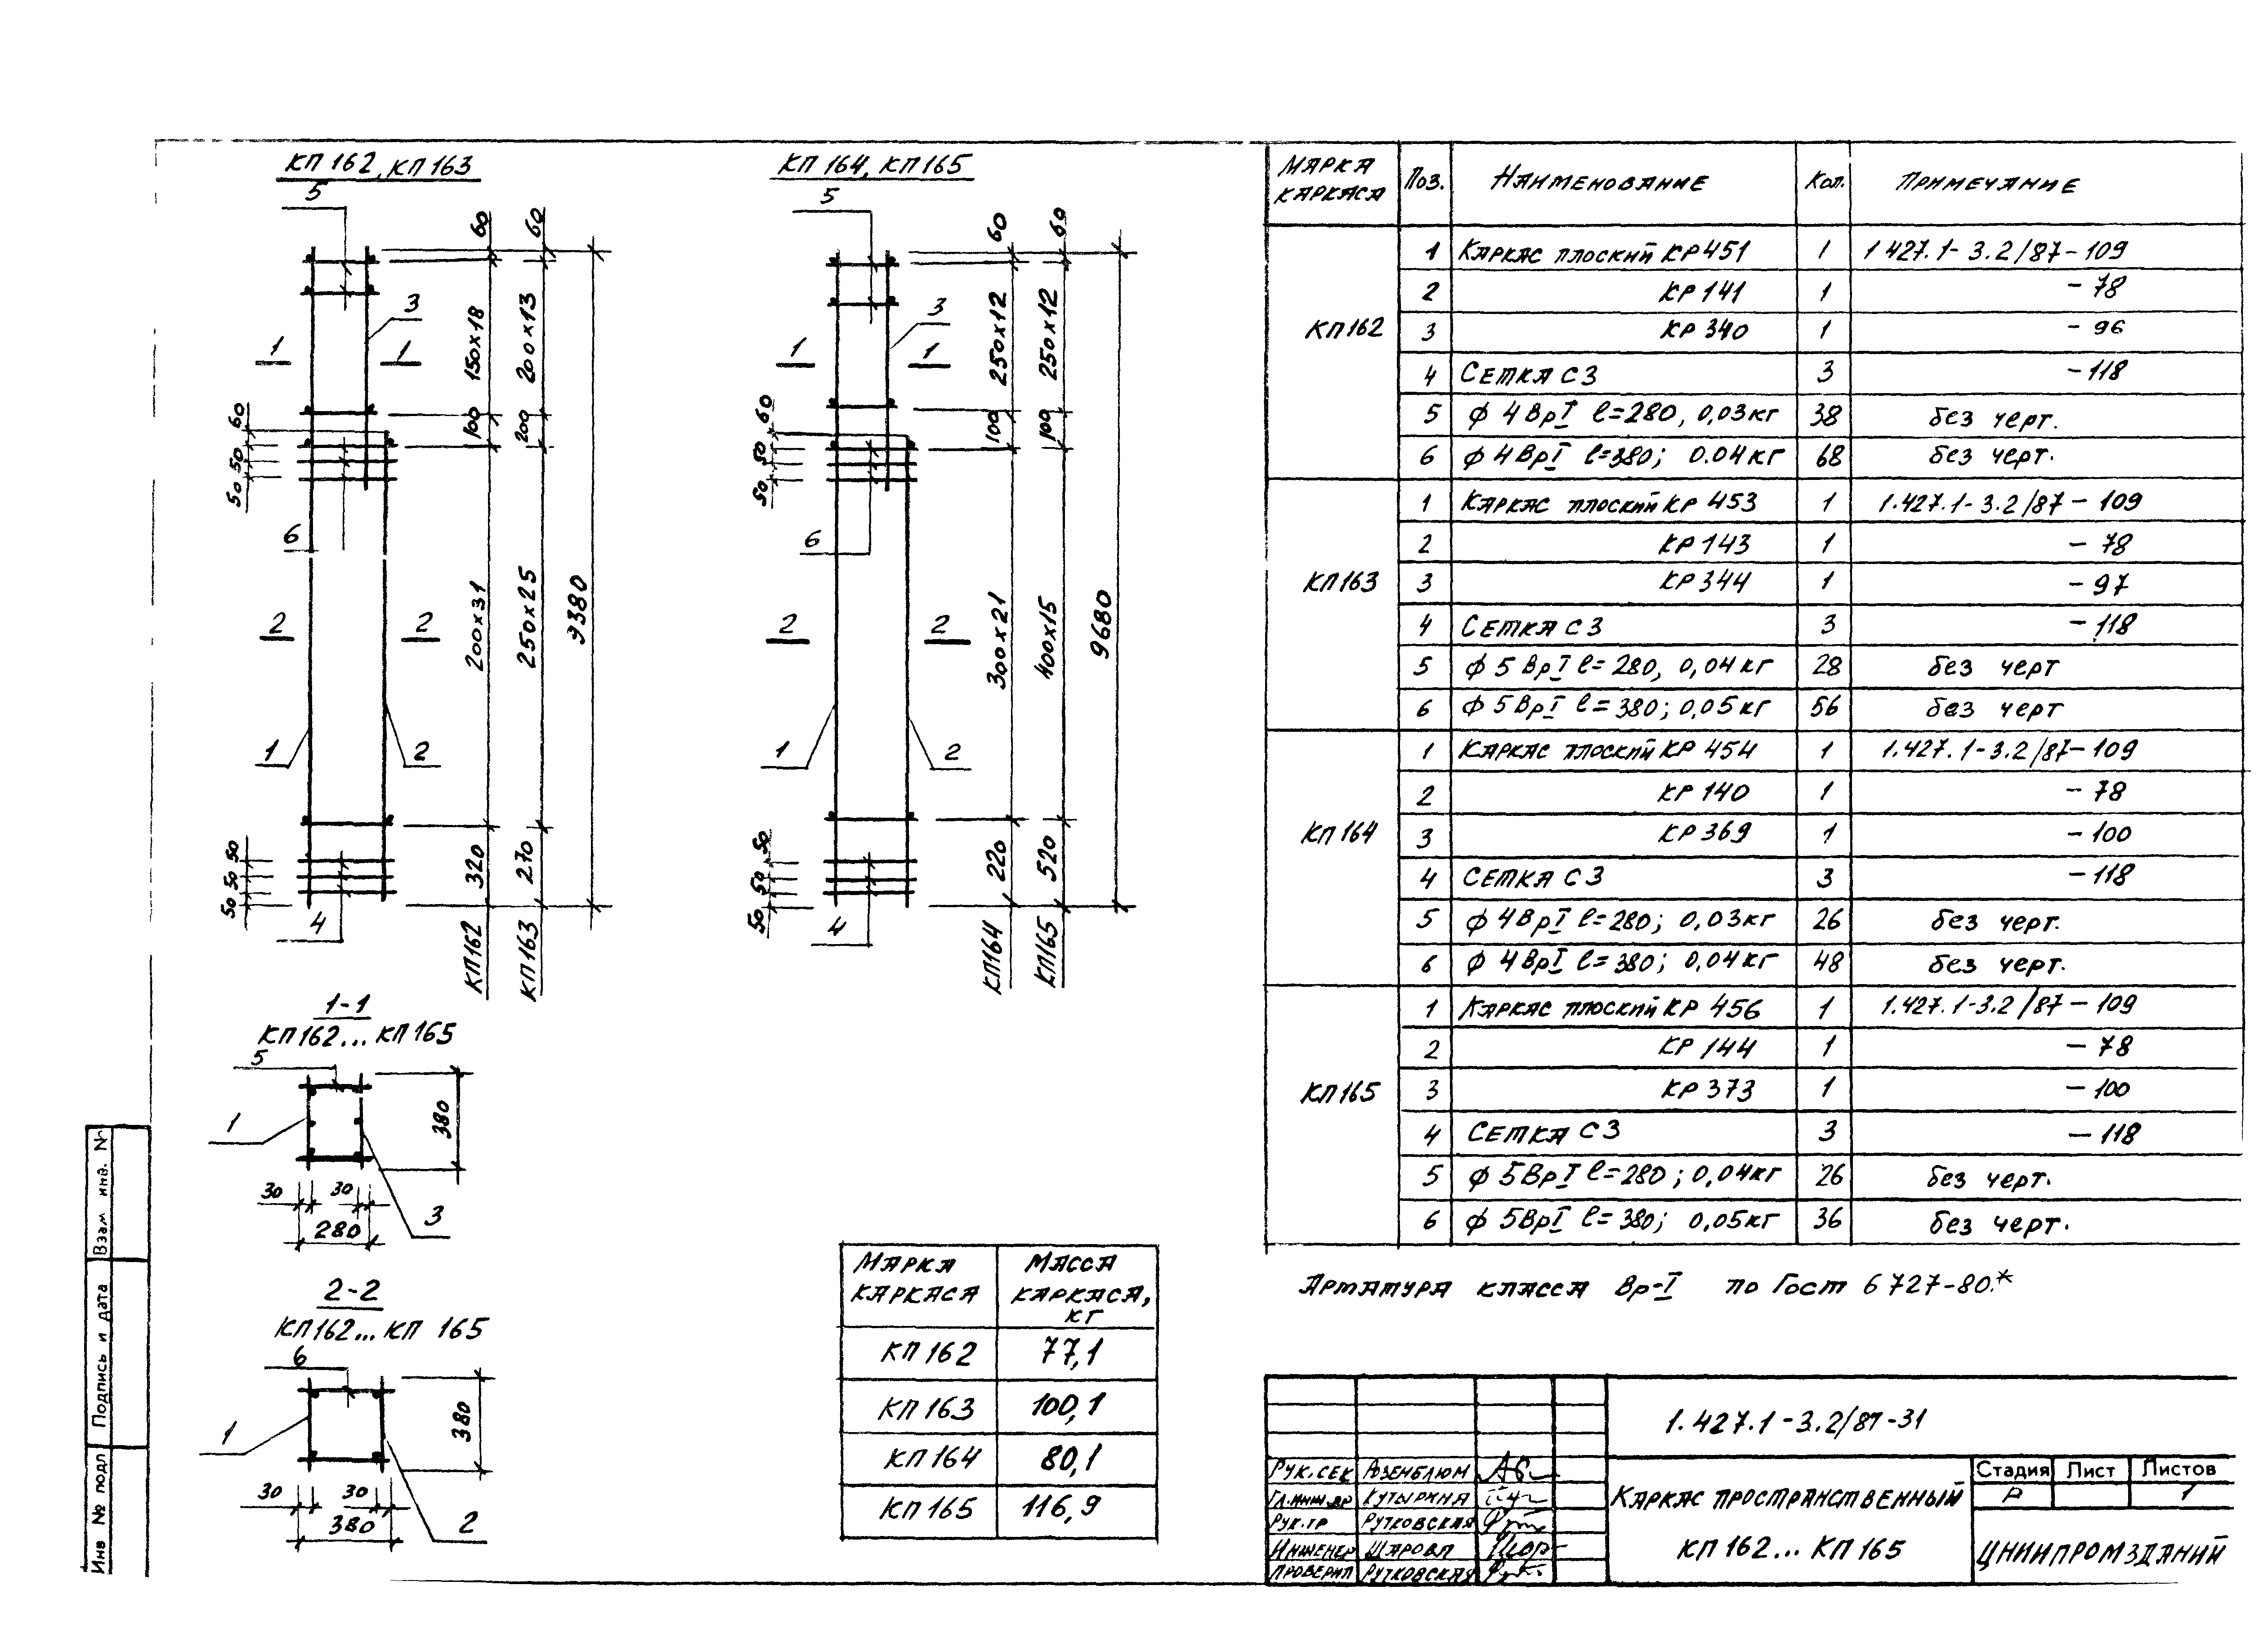 КП 162, КП 163
5
60
60
3
150×18
200×13
1
1
60
100
200
50
50
6
2
2
200×31
250×25
9380
1
2
50
50
50
320
270
4
КП162
КП163
КП 164, КП 165
5
60
60
3
250×12
250×12
1
1
60
100
100
50
50
6
2
2
300×21
400×15
9680
1
2
50
50
50
220
520
4
КП164
КП165
1-1
КП162... КП 165
5
1
380
30
30
3
280
2-2
КП162... КП 165
6
1
380
30
30
380
2
Марка каркаса | Масса каркаса, кг
КП 162 | 77,1
КП 163 | 100,1
КП 164 | 80,1
КП 165 | 116,9
Марка каркаса | Поз. | Наименование | Кол. | Примечание
КП162
1 | Каркас плоский КР451 | 1 | 1 427.1-3.2/87-109
2 | КР 141 | 1 | - 78
3 | КР 340 | 1 | - 96
4 | Сетка С3 | 3 | - 118
5 | ф 4 ВрI l=280, 0,03кг | 38 | без черт.
6 | ф 4 ВрI l=380; 0.04кг | 68 | без черт.
КП163
1 | Каркас плоский КР 453 | 1 | 1.427.1-3.2/87-109
2 | КР 143 | 1 | - 78
3 | КР 344 | 1 | - 97
4 | Сетка С3 | 3 | - 118
5 | ф 5 ВрI l=280, 0,04кг | 28 | без черт
6 | ф 5ВрI l=380; 0,05кг | 56 | без черт
КП164
1 | Каркас плоский КР 454 | 1 | 1.427.1-3.2/87-109
2 | КР 140 | 1 | - 78
3 | КР 369 | 1 | - 100
4 | Сетка С3 | 3 | - 118
5 | ф 4ВрI l=280; 0,03кг | 26 | без черт.
6 | ф 4ВрI l=380; 0,04кг | 48 | без черт.
КП165
1 | Каркас плоский КР 456 | 1 | 1.427.1-3.2/87-109
2 | КР 144 | 1 | - 78
3 | КР 373 | 1 | - 100
4 | Сетка С3 | 3 | - 118
5 | ф 5ВрI l=280; 0,04кг | 26 | без черт.
6 | ф 5ВрI l=380; 0,05кг | 36 | без черт.
Арматура класса Вр-I по Гост 6727-80.*
1.427.1-3.2/87-31
Рук.сек Розенблюм
Гл.инж.пр Кутырина
Рук.гр Рутковская
Инженер Шарова
Проверил Рутковская
Каркас пространственный
КП 162... КП 165
Стадия | Лист | Листов
Р | | 1
ЦНИИПРОМЗДАНИЙ
Взам инв. №
Подпись и дата
Инв № подл